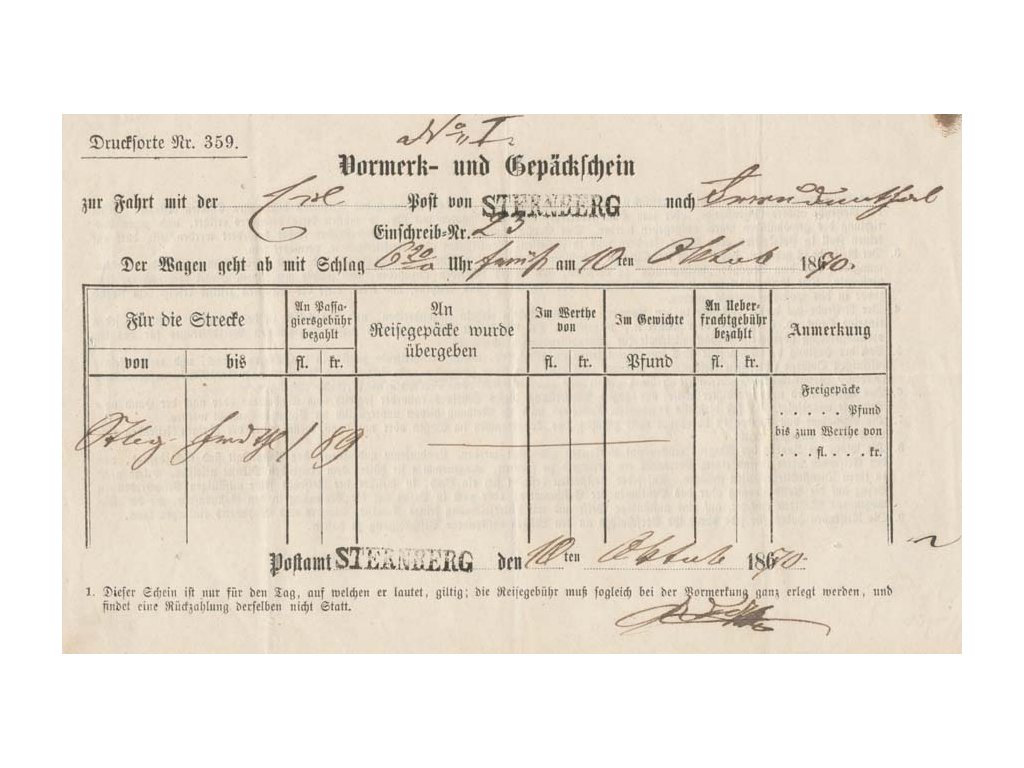 No. I.
Drucksorte Nr. 359.
Vormerk- und Gepäckschein
zur Fahrt mit der Eil Post von STERNBERG nach Freudenthal
Einschreib-Nr. 23
Der Wagen geht ab mit Schlag 6 20 Uhr früh am 10ten Oktob 1870.
Für die Strecke
An Passagiersgebühr bezahlt
An Reisegepäcke wurde übergeben
Im Werthe von
Im Gewichte
An Ueberfrachtgebühr bezahlt
Anmerkung
von bis fl. kr. fl. kr. Pfund fl. kr.
Freigepäcke
. . . . . Pfund
bis zum Werthe von
. . . . fl. . . . kr.
Stbg. Frdthl 1 89
Postamt STERNBERG den 10ten Oktob 1870.
1. Dieser Schein ist nur für den Tag, auf welchen er lautet, giltig; die Reisegebühr muß sogleich bei der Vormerkung ganz erlegt werden, und
findet eine Rückzahlung derselben nicht Statt.